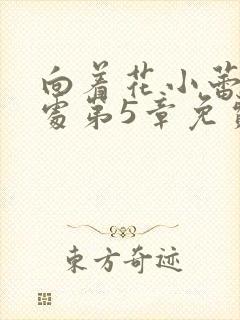 向着花小蕾
处第5章免费
东方奇迹